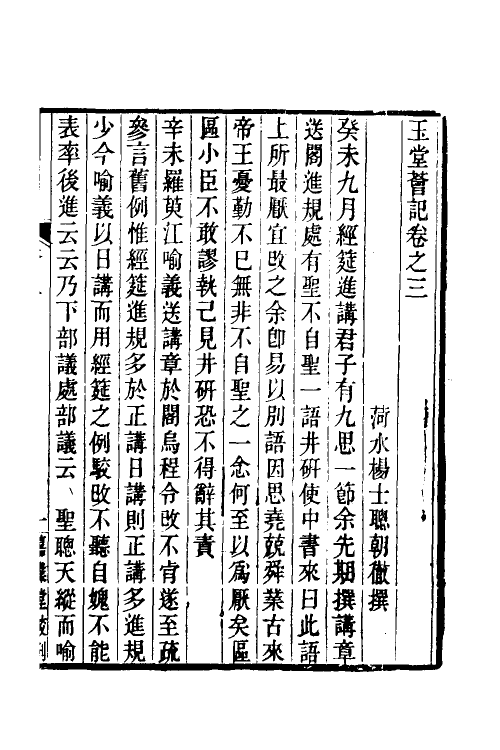 玉堂薈記卷之三
菏水楊士聰朝徹撰
癸未九月經筵進講君子有九思一節余先期撰講章
送閣進規處有聖不自聖一語井研使中書來曰此語
上所最厭宜改之余卽易以別語因思堯兢舜業古來
帝王憂勤不巳無非不自聖之一念何至以爲厭矣區
區小臣不敢謬執己見井研恐不得辭其責
辛未羅萸江喻義送講章於閣烏程令改不肯遂至疏
參言舊例惟經筵進規多於正講日講則正講多進規
少今喻義以日講而用經筵之例駮改不聽自媿不能
表率後進云云乃下部議處部議云聖聰天縱而喻